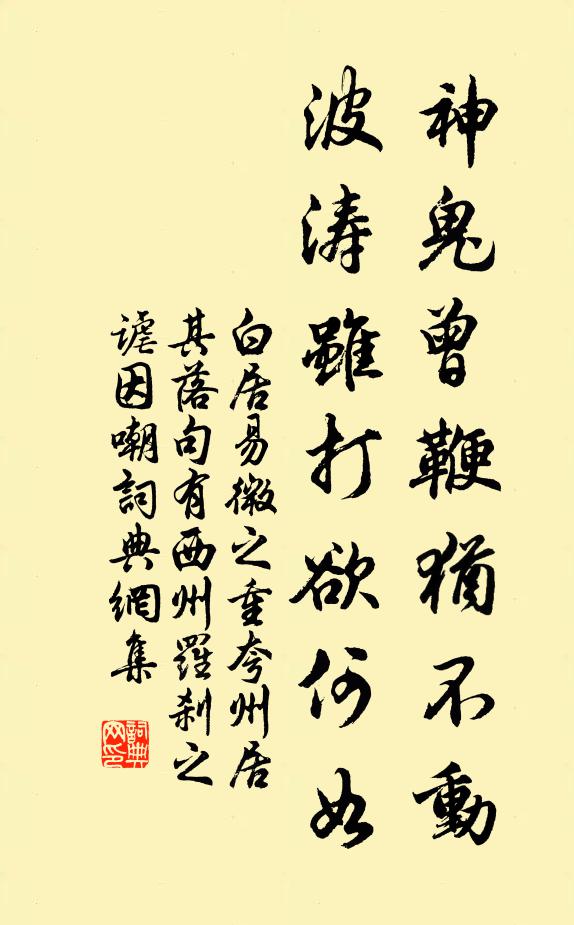 神鬼曾鞭猶不動
波濤雖打欲何如
白居易微之重夸州居
其落句有西州羅剎之
謔因嘲詞典網集
詞典
网印